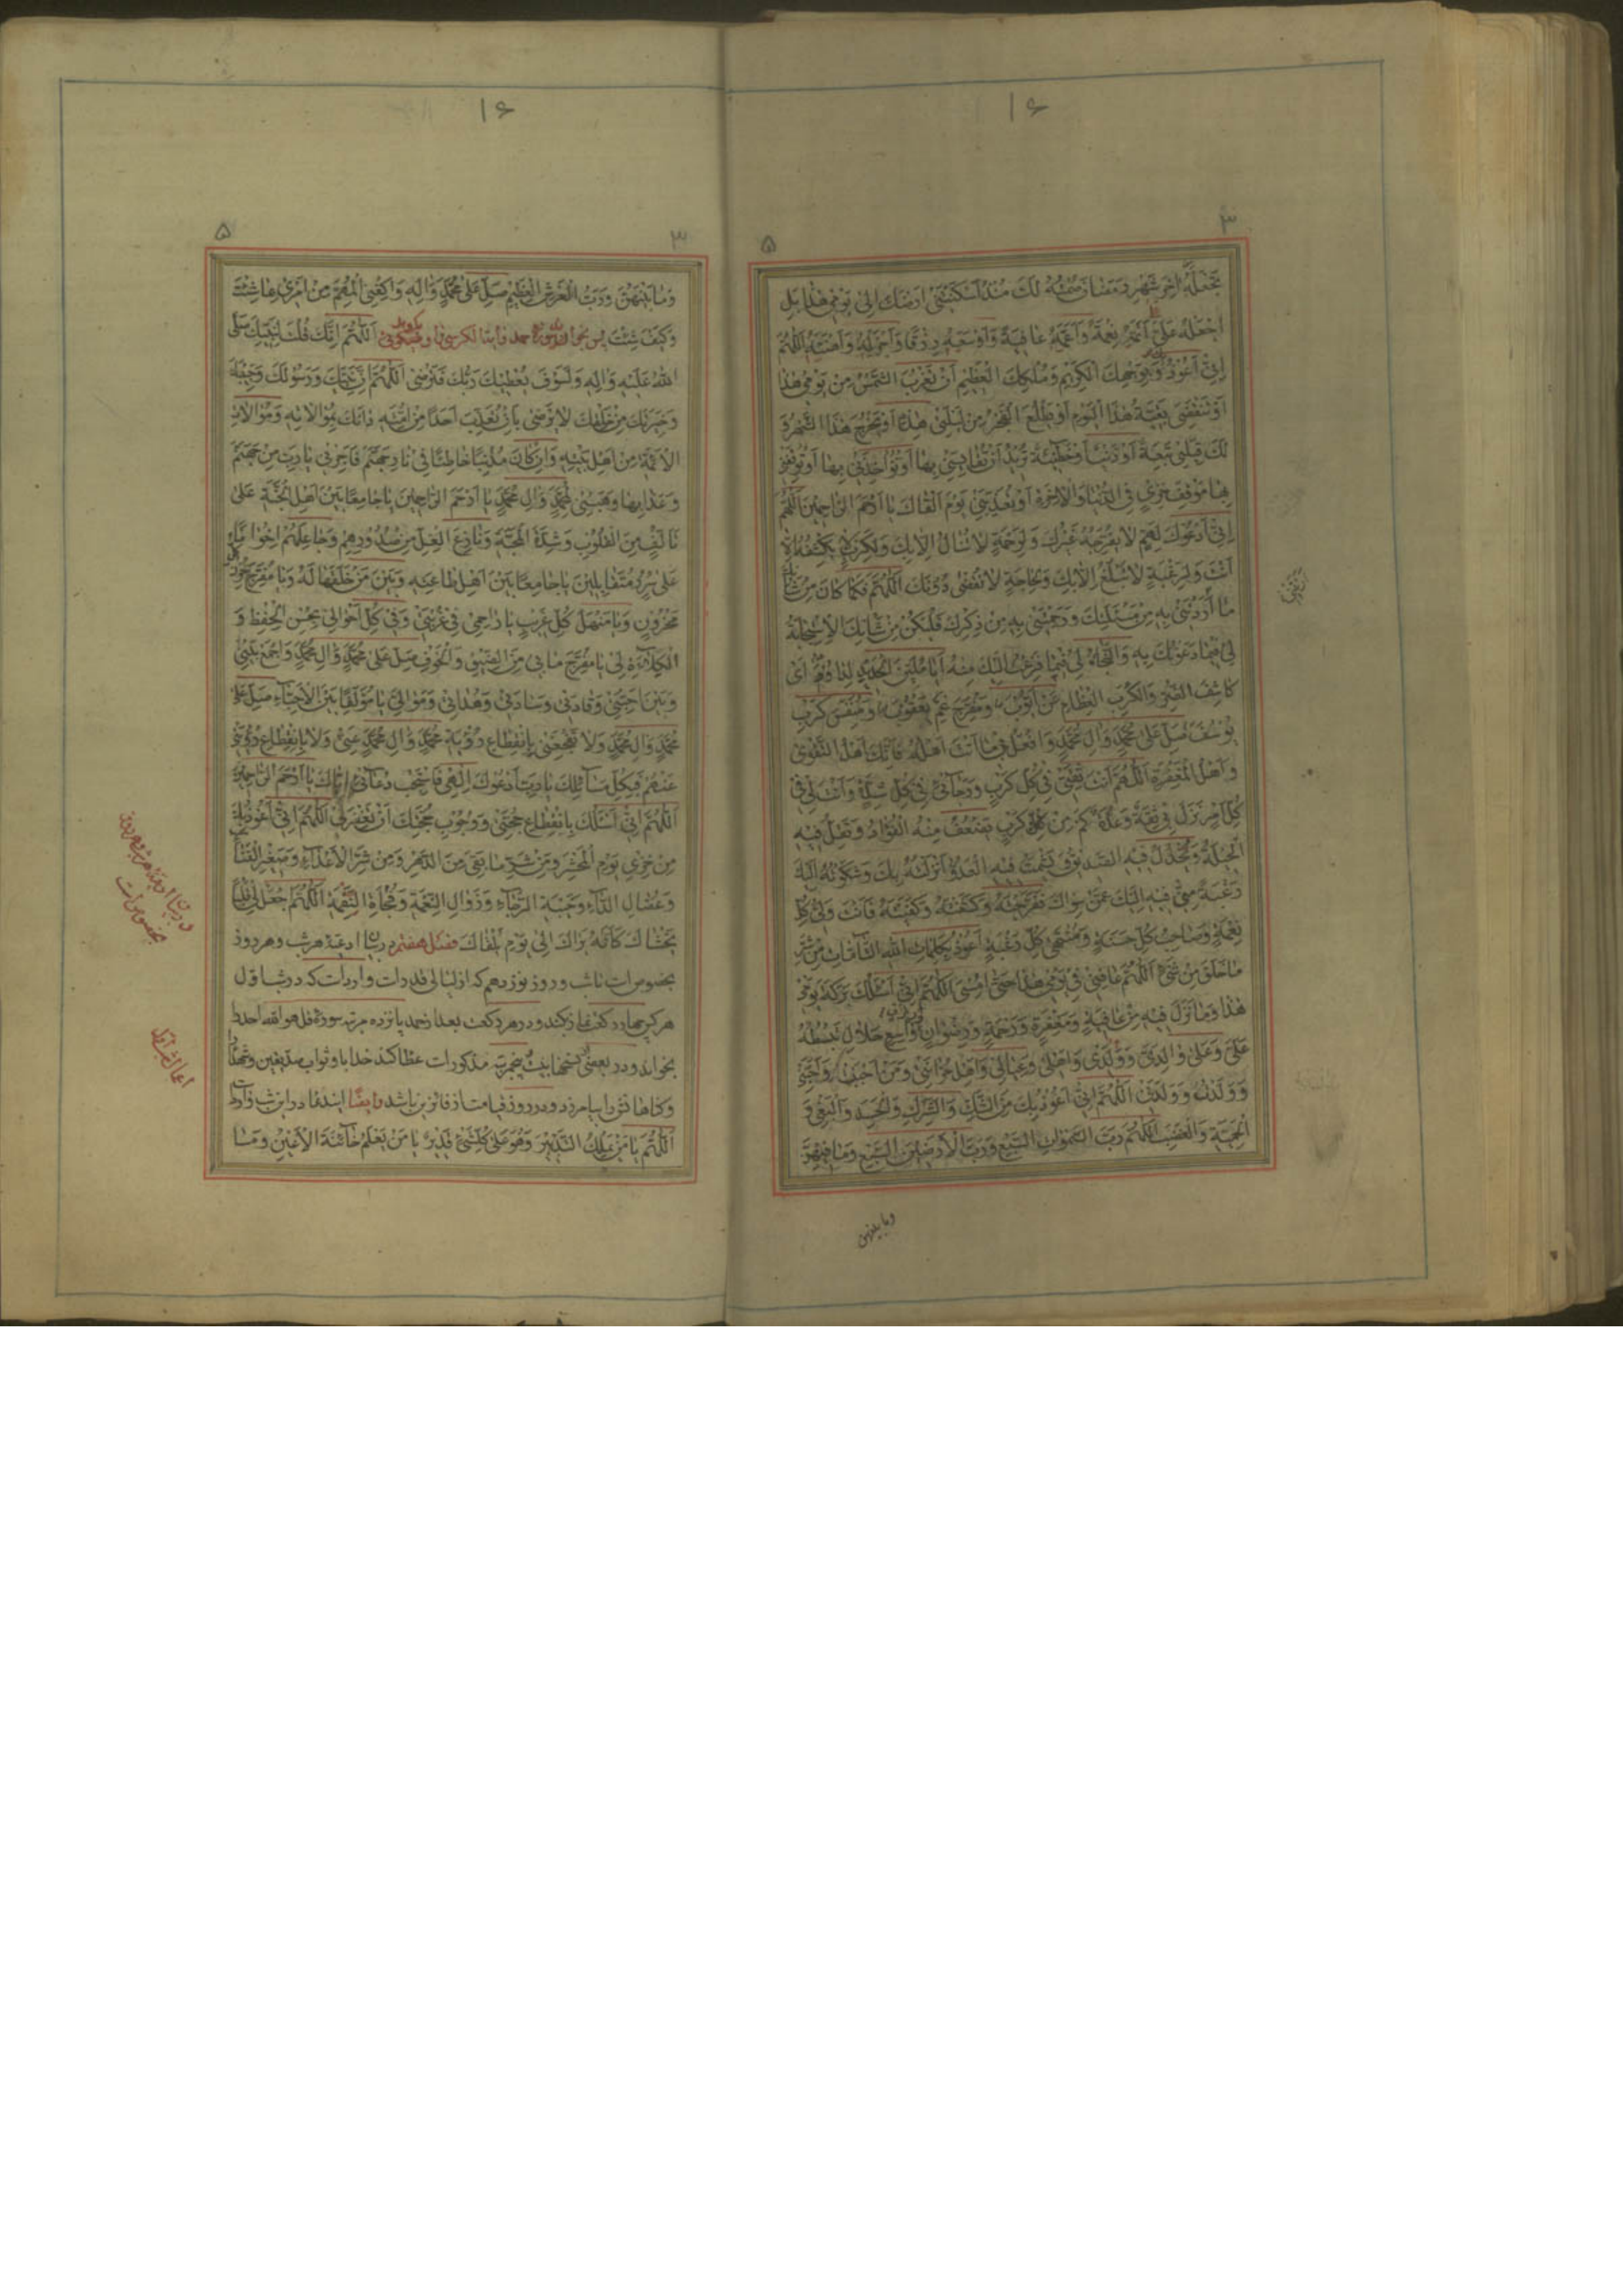 ۱۶
۳
۵
تَجْعَلَهُ اٰخِرَ شَهْرِ رَمَضٰانَ صُمْتُهُ لَكَ مُنْذُ اَسْكَنْتَنى اَرْضَكَ اِلىٰ يَوْمى هٰذٰا بَلِ
اجْعَلْهُ عَلَىَّ اَتَمَّهُ نِعْمَةً وَاَعَمَّهُ عٰافِيَةً وَاَوْسَعَهُ رِزْقًا وَاَجْزَلَهُ وَاَهْنَئَهُ اَللّٰهُمَّ
اِنّى اَعُوذُ بِوَجْهِكَ الْكَريمِ وَمُلْكِكَ الْعَظيمِ اَنْ تَغْرُبَ الشَّمْسُ مِنْ يَوْمى هٰذٰا
اَوْ يَنْقَضِىَ بَقِيَّةُ هٰذَا الْيَوْمِ اَوْ يَطْلُعَ الْفَجْرُ مِنْ لَيْلَتى هٰذِهِ اَوْ يَخْرُجَ هٰذَا الشَّهْرُ وَ
لَكَ قِبَلى تَبِعَةٌ اَوْ ذَنْبٌ اَوْ خَطيئَةٌ تُريدُ اَنْ تُقٰايِسَنى بِهٰا اَوْ تُؤٰاخِذَنى بِهٰا اَوْ تُوقِفَنى
بِهٰا مَوْقِفَ خِزْىٍ فِى الدُّنْيٰا وَالْاٰخِرَةِ اَوْ تُعَذِّبَنى يَوْمَ اَلْقٰاكَ يٰا اَرْحَمَ الرّٰاحِمينَ اَللّٰهُمَّ
اِنّى اَدْعُوكَ لِهَمٍّ لٰا يُفَرِّجُهُ غَيْرُكَ وَلِرَحْمَةٍ لٰا تُنٰالُ اِلّٰا بِكَ وَلِكَرْبٍ لٰا يَكْشِفُهُ اِلّٰا
اَنْتَ وَلِرَغْبَةٍ لٰا تُبْلَغُ اِلّٰا بِكَ وَلِحٰاجَةٍ لٰا تُقْضىٰ دُونَكَ اَللّٰهُمَّ فَكَمٰا كٰانَ مِنْ شَأْنِكَ
مٰا اَرَدْتَنى بِهِ مِنْ مَسْئَلَتِكَ وَرَحِمْتَنى بِهِ مِنْ ذِكْرِكَ فَلْيَكُنْ مِنْ شَأْنِكَ الْاِسْتِجٰابَةُ
لى فيمٰا دَعَوْتُكَ بِهِ وَالنَّجٰاةُ لى فيمٰا فَزِعْتُ اِلَيْكَ مِنْهُ اَيٰا مُلَيِّنَ الْحَديدِ لِدٰاوُدَ اَىْ
كٰاشِفَ الضُّرِّ وَالْكُرَبِ الْعِظٰامِ عَنْ اَيُّوبَ وَمُفَرِّجَ غَمِّ يَعْقُوبَ وَمُنَفِّسَ كَرْبِ
يُوسُفَ صَلِّ عَلىٰ مُحَمَّدٍ وَاٰلِ مُحَمَّدٍ وَافْعَلْ بى مٰا اَنْتَ اَهْلُهُ فَاِنَّكَ اَهْلُ التَّقْوىٰ
وَاَهْلُ الْمَغْفِرَةِ اَللّٰهُمَّ اَنْتَ ثِقَتى فى كُلِّ كَرْبٍ وَرَجٰائى فى كُلِّ شِدَّةٍ وَاَنْتَ لى فى
كُلِّ اَمْرٍ نَزَلَ بى ثِقَةٌ وَعُدَّةٌ كَمْ مِنْ كَرْبٍ يَضْعُفُ مِنْهُ الْفُؤٰادُ وَتَقِلُّ فيهِ
الْحيلَةُ وَيَخْذُلُ فيهِ الصَّديقُ وَيَشْمَتُ فيهِ الْعَدُوُّ اَنْزَلْتُهُ بِكَ وَشَكَوْتُهُ اِلَيْكَ
رَغْبَةً مِنّى فيهِ اِلَيْكَ عَمَّنْ سِوٰاكَ فَفَرَّجْتَهُ وَكَشَفْتَهُ وَكَفَيْتَهُ فَاَنْتَ وَلِىُّ كُلِّ
نِعْمَةٍ وَصٰاحِبُ كُلِّ حَسَنَةٍ وَمُنْتَهىٰ كُلِّ رَغْبَةٍ اَعُوذُ بِكَلِمٰاتِ اللّٰهِ التّٰامّٰاتِ مِنْ شَرِّ
مٰا خَلَقَ مِنْ شَىْءٍ اَللّٰهُمَّ عٰافِنى فى يَوْمى هٰذٰا حَتّىٰ اُمْسِىَ اَللّٰهُمَّ اِنّى اَسْئَلُكَ بَرَكَةَ يَوْمى
هٰذٰا وَمٰا نَزَلَ فيهِ مِنْ عٰافِيَةٍ وَمَغْفِرَةٍ وَرَحْمَةٍ وَرِضْوٰانٍ وٰاسِعٍ حَلٰالٍ تَبْسُطُهُ
عَلَىَّ وَعَلىٰ وٰالِدَىَّ وَوُلْدى وَاَهْلى وَعِيٰالى وَاَهْلِ حُزٰانَتى وَمَنْ اَحْبَبْتُ وَاَحَبَّنى
وَوَلَدْتُ وَوَلَدَنى اَللّٰهُمَّ اِنّى اَعُوذُ بِكَ مِنَ الشَّكِّ وَالشِّرْكِ وَالْحَسَدِ وَالْبَغْىِ وَ
الْحَمِيَّةِ وَالْغَضَبِ اَللّٰهُمَّ رَبَّ السَّمٰوٰاتِ السَّبْعِ وَرَبَّ الْاَرَضينَ السَّبْعِ وَمٰا فيهِنَّ
وما بينهن
۱۶
۳
۵
وَمٰا بَيْنَهُنَّ وَرَبَّ الْعَرْشِ الْعَظيمِ صَلِّ عَلىٰ مُحَمَّدٍ وَاٰلِهِ وَاكْفِنِى الْمُهِمَّ مِنْ اَمْرى بِمٰا شِئْتَ
وَكَيْفَ شِئْتَ پس بخواند سوره حمد واية الكرسى اَللّٰهُمَّ اِنَّكَ قُلْتَ لِنَبِيِّكَ صَلَّى
اللّٰهُ عَلَيْهِ وَاٰلِهِ وَلَسَوْفَ يُعْطيكَ رَبُّكَ فَتَرْضىٰ اَللّٰهُمَّ اِنَّ نَبِيَّكَ وَرَسُولَكَ وَحَبيبَكَ
وَخِيَرَتَكَ مِنْ خَلْقِكَ لٰا يَرْضىٰ بِاَنْ تُعَذِّبَ اَحَدًا مِنْ اُمَّتِهِ دٰانَكَ بِمُوٰالٰاتِهِ وَمُوٰالٰاتِ
الْاَئِمَّةِ مِنْ اَهْلِ بَيْتِهِ وَاِنْ كٰانَ مُذْنِبًا خٰاطِئًا فى نٰارِ جَهَنَّمَ فَاَجِرْنى يٰا رَبِّ مِنْ جَهَنَّمَ
وَعَذٰابِهٰا وَهَبْنى لِمُحَمَّدٍ وَاٰلِ مُحَمَّدٍ يٰا اَرْحَمَ الرّٰاحِمينَ يٰا جٰامِعًا بَيْنَ اَهْلِ الْجَنَّةِ عَلىٰ
تَأَلُّفٍ مِنَ الْقُلُوبِ وَشِدَّةِ الْمَحَبَّةِ وَنٰازِعَ الْغِلِّ مِنْ صُدُورِهِمْ وَجٰاعِلَهُمْ اِخْوٰانًا
عَلىٰ سُرُرٍ مُتَقٰابِلينَ يٰا جٰامِعًا بَيْنَ اَهْلِ طٰاعَتِهِ وَبَيْنَ مَنْ خَلَقَهٰا لَهُ وَيٰا مُفَرِّجَ حُزْنِ كُلِّ
مَحْزُونٍ وَيٰا مَنْهَلَ كُلِّ غَريبٍ يٰا رٰاحِمى فى غُرْبَتى وَفى كُلِّ اَحْوٰالى بِحُسْنِ الْحِفْظِ وَ
الْكِلٰائَةِ لى يٰا مُفَرِّجَ مٰا بى مِنَ الضّيقِ وَالْخَوْفِ صَلِّ عَلىٰ مُحَمَّدٍ وَاٰلِ مُحَمَّدٍ وَاجْمَعْ بَيْنى
وَبَيْنَ اَحِبَّتى وَقٰادَتى وَسٰادَتى وَهُدٰاتى وَمَوٰالِىَّ يٰا مُؤَلِّفًا بَيْنَ الْاَحِبّٰاءِ صَلِّ عَلىٰ
مُحَمَّدٍ وَاٰلِ مُحَمَّدٍ وَلٰا تَفْجَعْنى بِانْقِطٰاعِ رُؤْيَةِ مُحَمَّدٍ وَاٰلِ مُحَمَّدٍ عَنّى وَلٰا بِانْقِطٰاعِ رُؤْيَتى
عَنْهُمْ فَبِكُلِّ مَسٰائِلِكَ يٰا رَبِّ اَدْعُوكَ اِلٰهى فَاسْتَجِبْ دُعٰائى اِيّٰاكَ يٰا اَرْحَمَ الرّٰاحِمينَ
اَللّٰهُمَّ اِنّى اَسْئَلُكَ بِانْقِطٰاعِ حُجَّتى وَوُجُوبِ حُجَّتِكَ اَنْ تَغْفِرَ لى اَللّٰهُمَّ اِنّى اَعُوذُ بِكَ
مِنْ خِزْىِ يَوْمِ الْمَحْشَرِ وَمِنْ شَرِّ مٰا بَقِىَ مِنَ الدَّهْرِ وَمِنْ شَرِّ الْاَعْدٰاءِ وَصَغيرِ الْفَنٰاءِ
وَعُضٰالِ الدّٰاءِ وَخَيْبَةِ الرَّجٰاءِ وَزَوٰالِ النِّعْمَةِ وَفُجٰاةِ النِّقْمَةِ اَللّٰهُمَّ اجْعَلْ لى قَلْبًا
يَخْشٰاكَ كَاَنَّهُ يَرٰاكَ اِلىٰ يَوْمِ يَلْقٰاكَ فصل هفتم در بيان ادعيه هر شب و هر روز
بخصوص است تا شب و روز نوزدهم كه از ليالى قدر است وارد است كه در شب اول
هر كس چهار ركعت نماز بكند و در هر ركعت بعد از حمد پانزده مرتبه سوره قل هو الله احد را
بخواند و در بعضى نسخها بيست و پنجمرتبه مذكور است عطا كند خدا باو ثواب صديقين و شهدا
و گناهانش را بيامرزد و در روز قيامت از فائزين باشد و ايضًا ايندعا در اين شب وارد است
اَللّٰهُمَّ يٰا مَنْ يَمْلِكُ التَّدْبيرَ وَهُوَ عَلىٰ كُلِّشَىْءٍ قَديرٌ يٰا مَنْ يَعْلَمُ خٰائِنَةَ الْاَعْيُنِ وَمٰا
در بيان ادعيه هر شب و هر روز
بخصوص است
اعمال شب اول